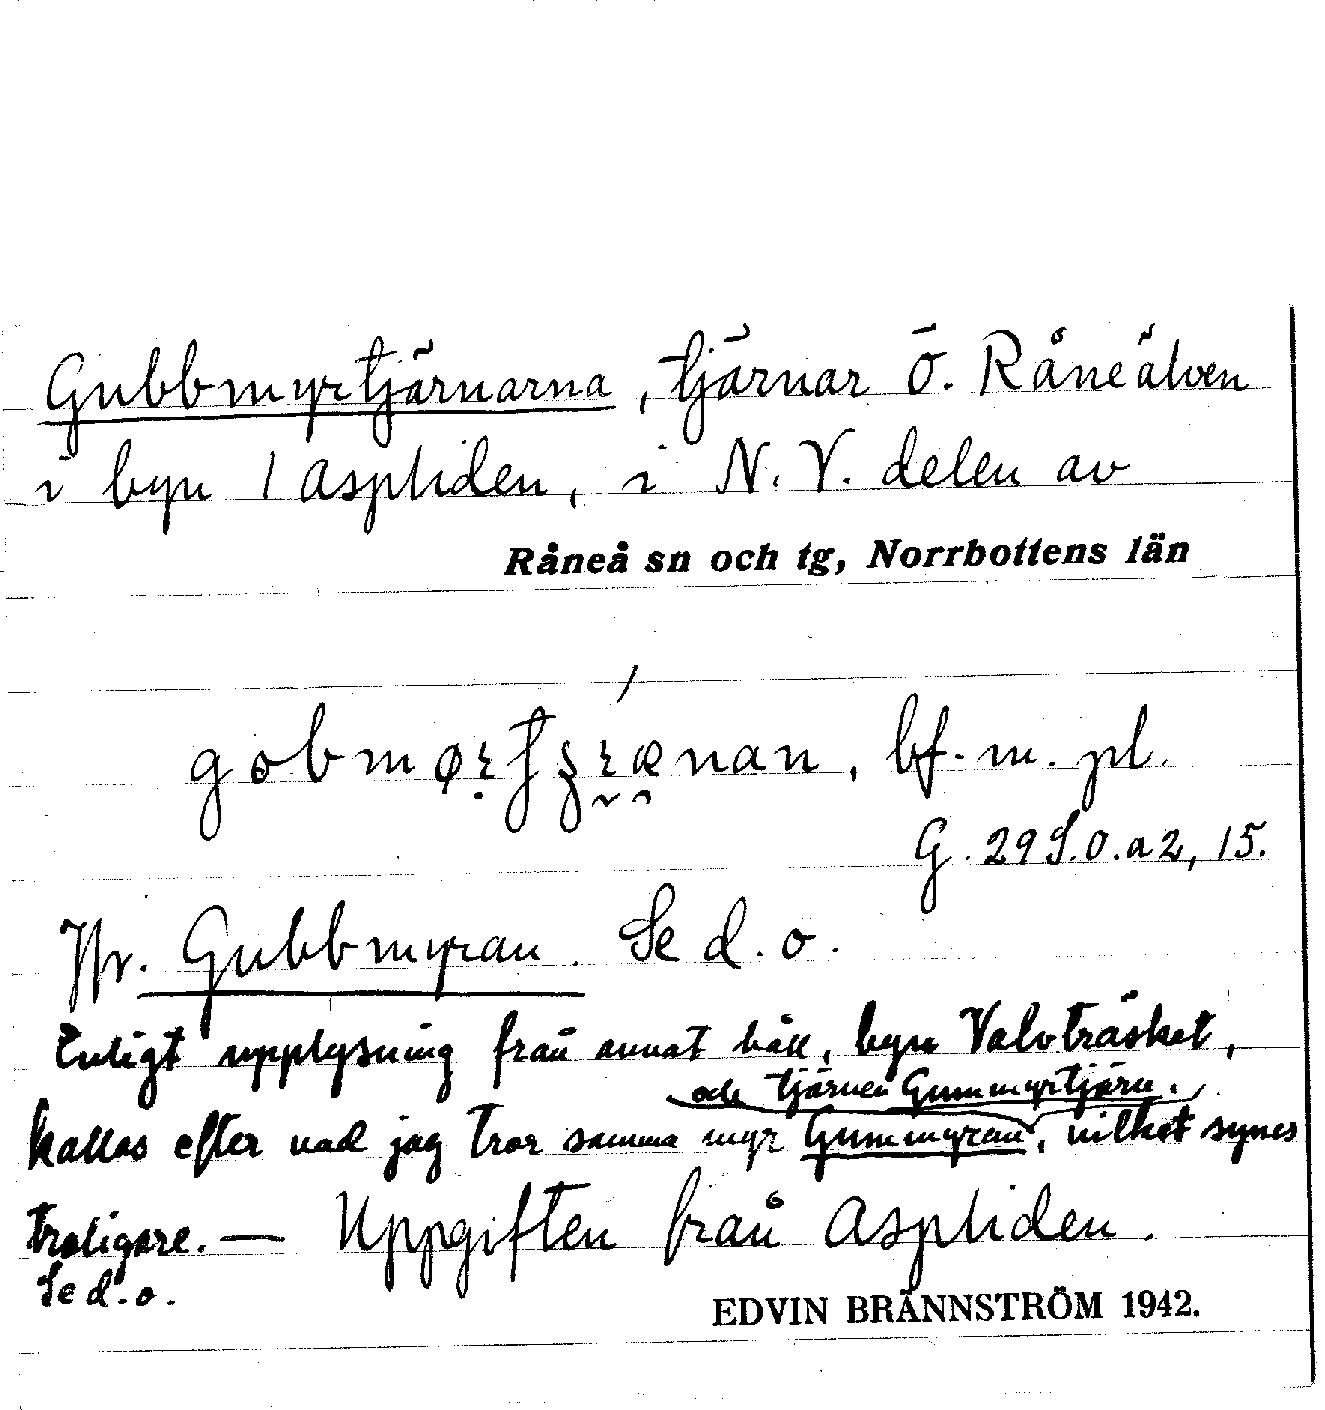 Gubbmyrtjärnarna, tjärnar ö. Råneälven
i byn 1 Aspliden, i N.V. delen av
Råneå sn och tg, Norrbottens län
bf. m. pl.
G. 29 S.o.a2, 15.
Jfr. Gubbmyran. Se d.o.
Enligt upplysning från annat håll, byn Valvträsket,
och tjärnen Gummyrtjärn.
kallas efter vad jag tror samma myr Gummyran, vilket synes
troligare. — Uppgiften från Aspliden.
Se d.o.
EDVIN BRÄNNSTRÖM 1942.